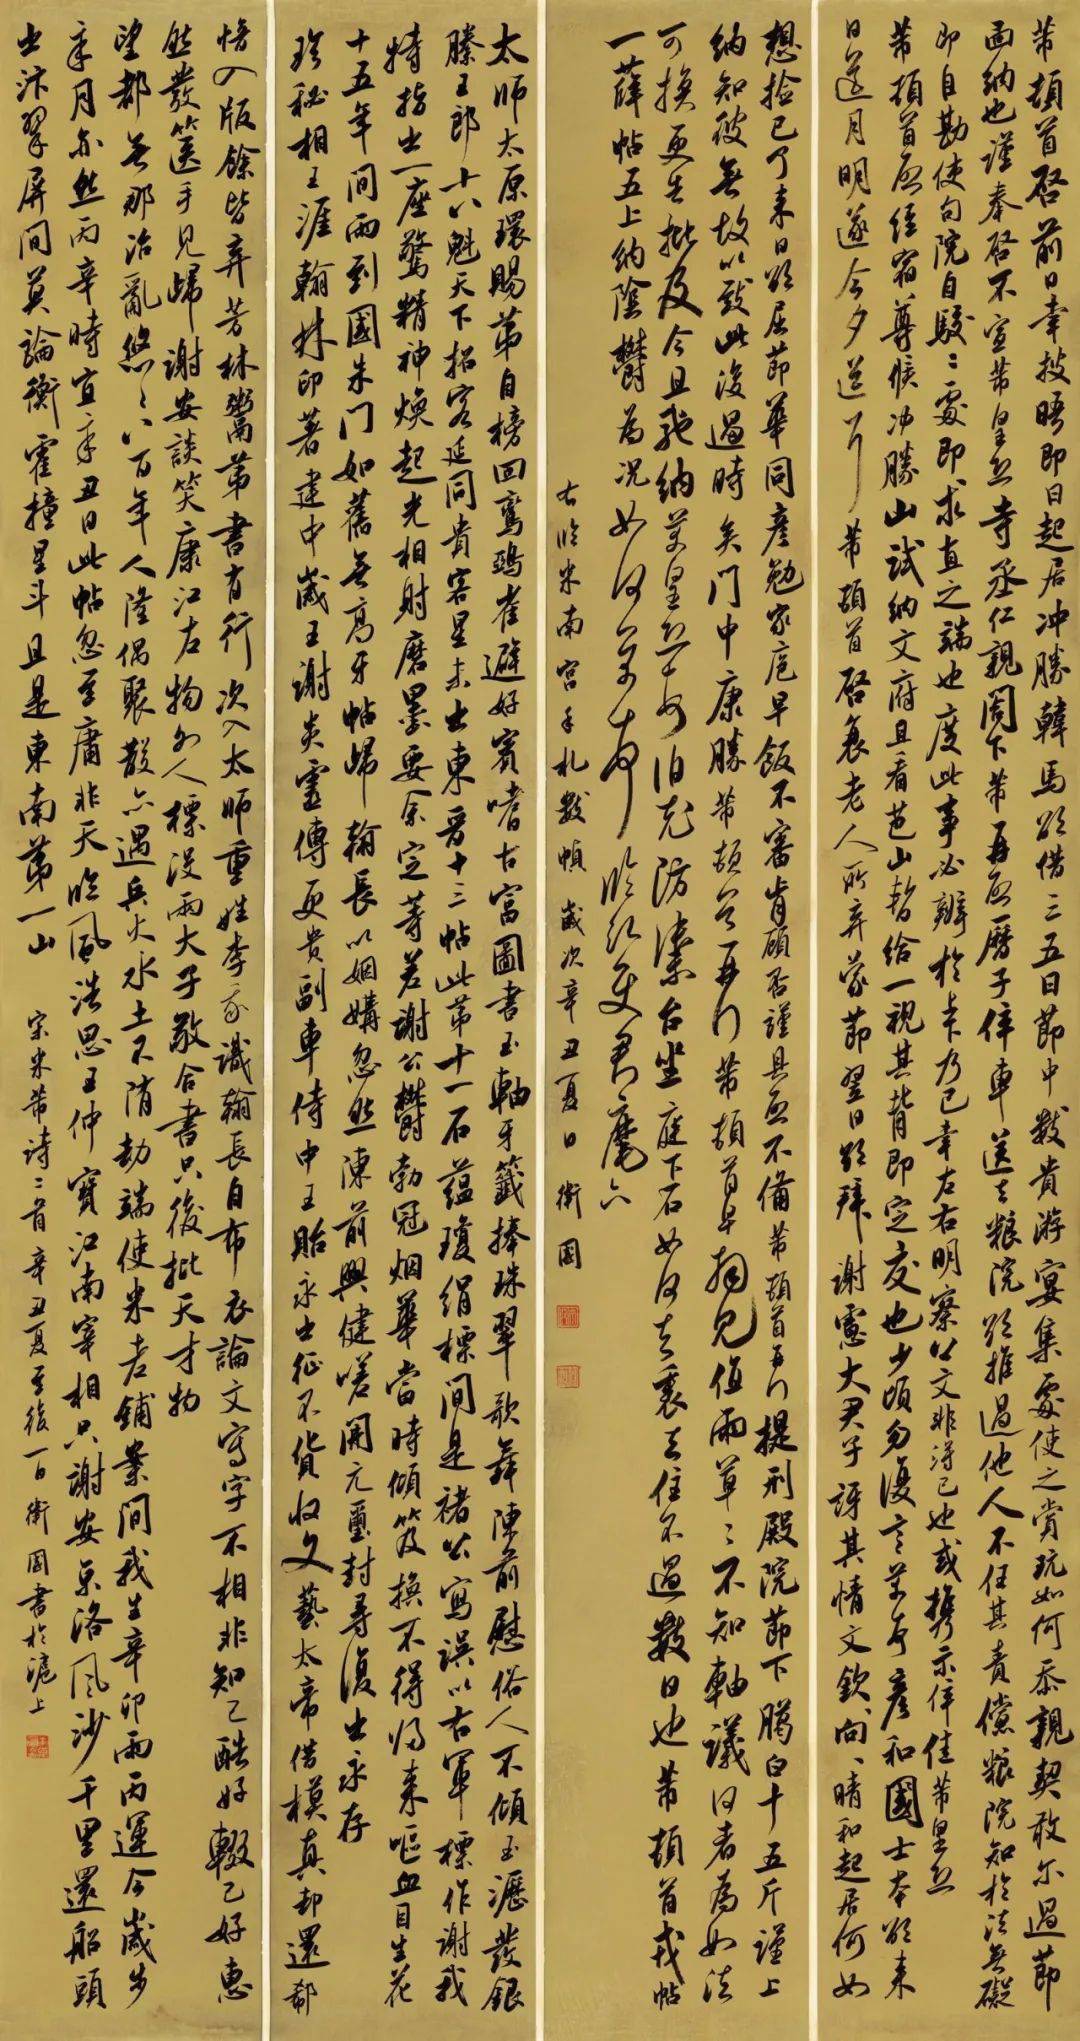 芾頓首啓前日幸披晤即日起居冲勝韓馬欲借三五日節中數貴游宴集處使之賞玩如何忝親契敢尔過節
面納也謹奉啓不宣芾皇恐寺丞仁親閣下芾再啓曆子倅車送去粮院欲推過他人不任其責儻粮院知於法無礙
即自勘使句院自駁二處即求直之端也度此事必辦於卡乃已幸左右明察公文非得已也或携示倅佳芾皇恐
芾頓首啓經宿尊候冲勝山試納文府且看芭山暫給一視其背即定交也少頃勿復言芾皇恐彦和國士本欲来
日送月明遂今夕送耳芾頓首啓衰老人所弃蒙節翌日欲拜謝憲大君子訝其情文欽向晴和起居何如
想捡已了来日欲屈節華同彦勉家庖早飯不審肯顧否謹具啓不備芾頓首再行提刑殿院節下膓白十五斤謹上
納知彼無故以致此復過時矣門中康勝芾頓首再行芾頓首早拘見值雨草二不知軸議何者為如法
可換更告批及今且馳納芾皇恐如何伯充防禦台坐庭下石如何去裹去住不過數日也芾頓首戎帖
一薛帖五上納陰鬱為況如何芾頓首臨紅吏君麾六
右臨米南宮手札數幀歲次辛丑夏日衛國
太師太原環賜第自榜回鸞鵶雀避好賓嗜古富圖書玉軸牙籤捧珠翠歌舞陳前慰俗人不傾玉瀝發銀
縢王郎十八魁天下招客延同貴客星未出東晉十三帖此第十一石蘊瓊絹標間是褚公寫誤以右軍標作謝我
特指出一座驚精神煥起光相射磨墨要余定等差謝公鬱勃冠烟華當時傾笈換不得归来嘔血目生花
十五年間兩到國朱門如舊無高牙帖歸翰長以姻媾忽然陳前興健嗟開元璽封尋復出永存
珍秘相王涯翰林印著建中歲王謝炎靈傳更貴副車侍中王貽永出征不貨收文藝太帝借模真却還郗
愔入版餘皆弃芳林鬻第書有行次入太師重姓李我識翰長自布衣論文寫字不相非知己酷好輟己好惠
然發篋手見歸謝安談笑康江左物外人標没兩大子敬合書只後批天才物
望都無那治亂悠〻八百年人隆偶聚散六遇兵火水土不隋劫端使米老鋪案間我生辛卯兩丙運今歲步
辛月亦然丙辛時宜辛丑日此帖忽至庸非天臨風浩思王仲寶江南宰相只謝安京洛風沙千里還船頭
出汴翠屏間莫論衡霍撞星斗且是東南第一山 宋米芾诗二首辛丑夏至後一日衛國書於滬上